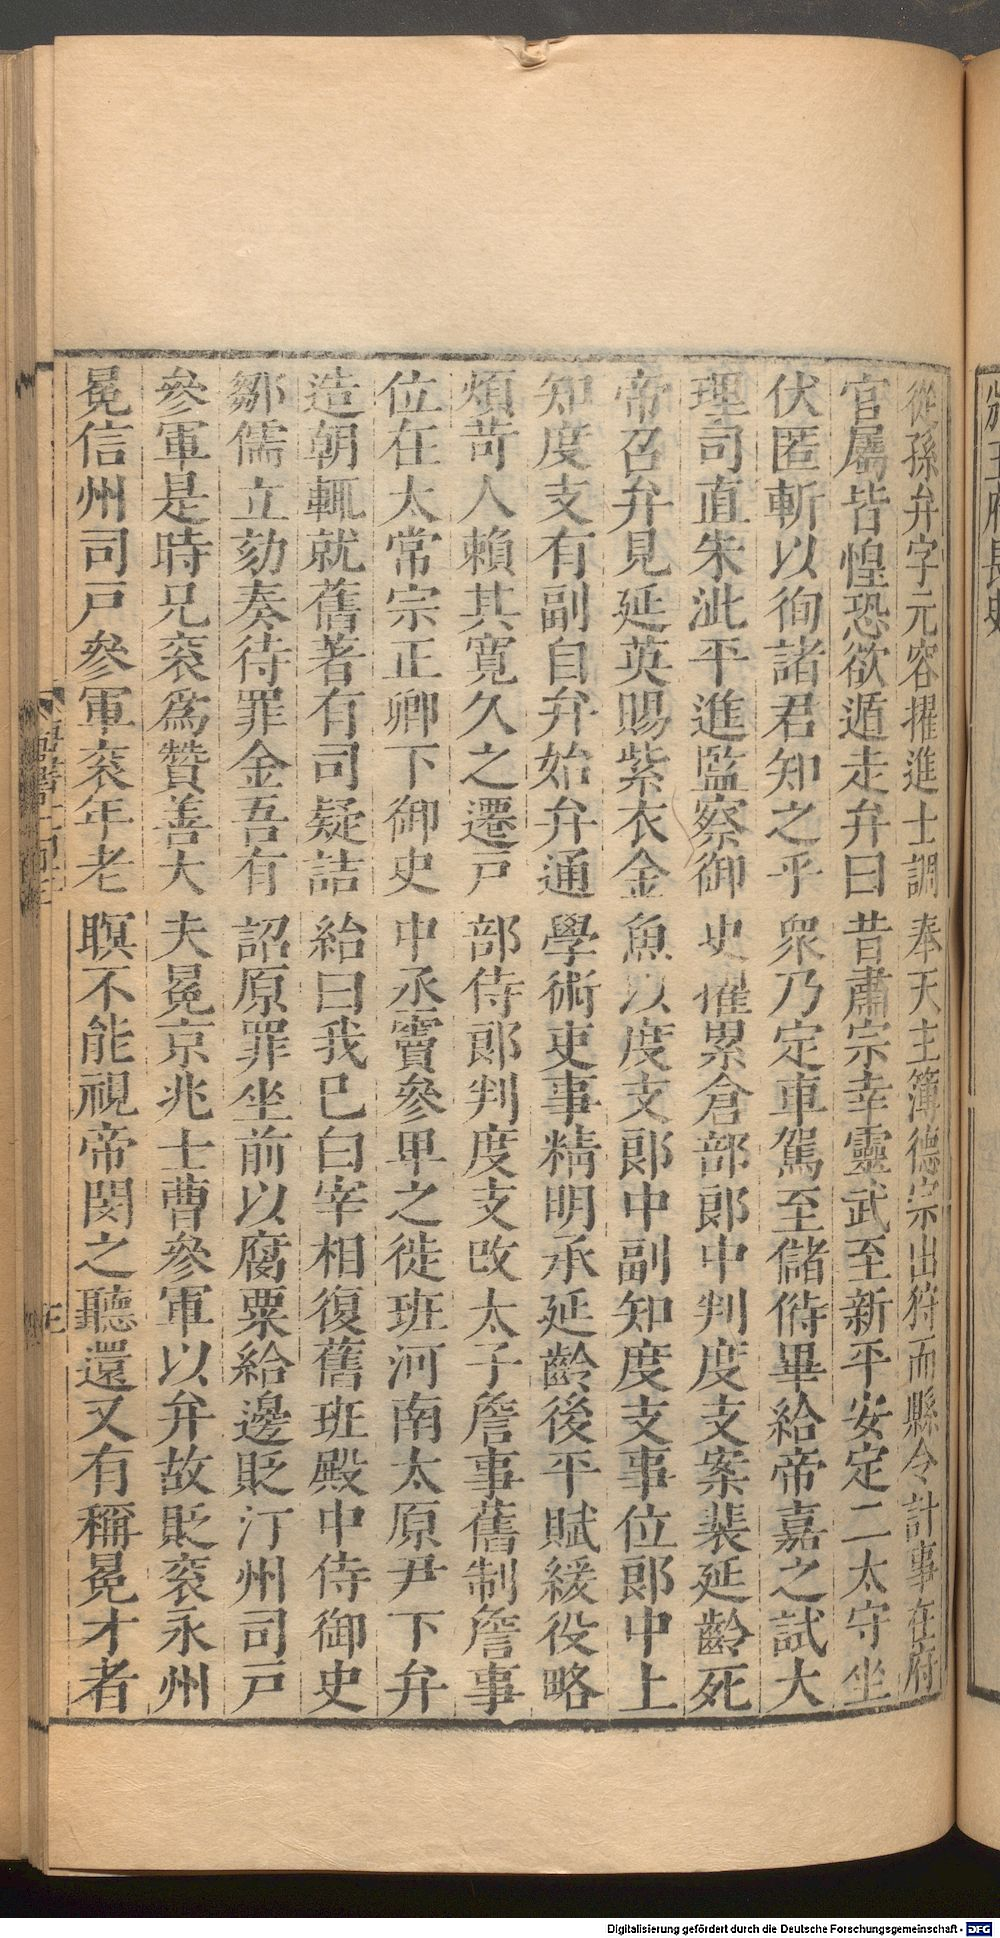 從孫弁字元容擢進士調奉天主簿德宗出狩而縣令計事在府
官屬皆惶恐欲遁走弁曰昔肅宗幸靈武至新平安定二太守坐
伏匿斬以徇諸君知之乎衆乃定車駕至儲偫畢給帝嘉之試大
理司直朱泚平進監察御史擢累倉部郎中判度支案裴延齡死
帝召弁見延英賜紫衣金魚以度支郎中副知度支事位郎中上
知度支有副自弁始弁通學術吏事精明承延齡後平賦緩役略
煩苛人賴其寬久之遷戸部侍郎判度支改太子詹事舊制詹事
位在太常宗正卿下御史中丞竇參卑之徙班河南太原尹下弁
造朝輒就舊著有司疑詰給曰我已白宰相復舊班殿中侍御史
鄒儒立劾奏待罪金吾有詔原罪坐前以腐粟給邊貶汀州司戸
參軍是時兄衮爲贊善大夫冕京兆士曹參軍以弁故貶衮永州
冕信州司戸參軍衮年老瞑不能視帝閔之聽還又有稱冕才者
Digitalisierung gefördert durch die Deutsche Forschungsgemeinschaft - DFG